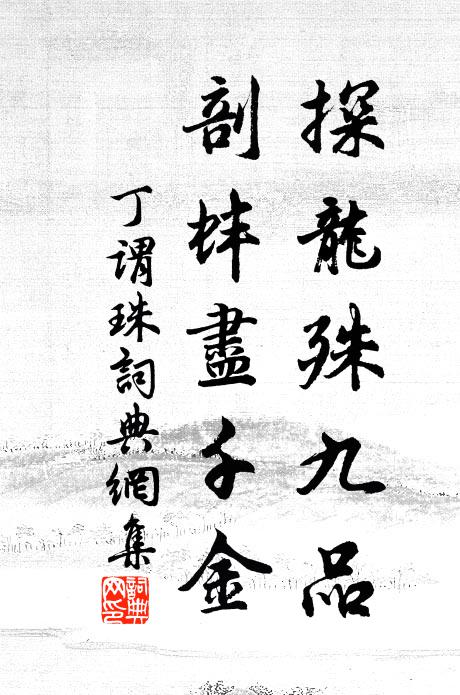 探龍殊九品
剖蚌盡千金
丁謂珠詞典網集
詞典網印